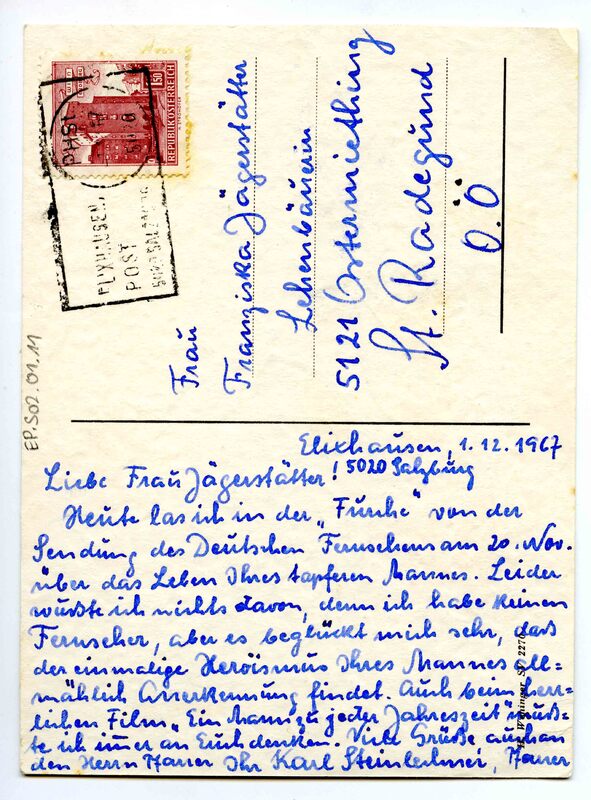 1.50
REPUBLIK ÖSTERREICH
ELIXHAUSEN,
POST
5020 SALZBURG
Frau
Franziska Jägerstätter
Lehenbäuerin
5121 Ostermiething
St. Radegund
O.Ö
EP.S02.01.11
Elixhausen, 1.12.1967
5020 Salzburg
Liebe Frau Jägerstätter!
Heute las ich in der „Furche" von der
Sendung des Deutschen Fernsehens am 20. Nov.
über das Leben Ihres tapferen Mannes. Leider
wußte ich nichts davon, denn ich habe keinen
Fernseher, aber es beglückt mich sehr, daß
der einmalige Heroismus Ihres Mannes all=
mählich Anerkennung findet. Auch beim herr=
lichen Film „Ein Mann zu jeder Jahreszeit" muß=
te ich immer an Euch denken. Viele Grüße auch an
den Herrn Pfarrer Ihr Karl Steinlechner, Pfarrer